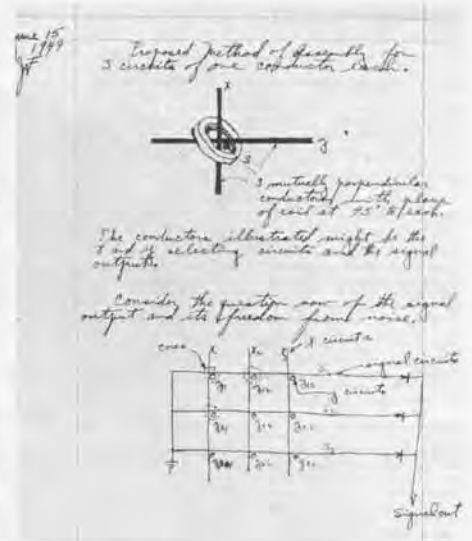 June 15
1949
Proposed Method of Assembly for
3 circuits of one conductor each.
x
y
s
3 mutually perpendicular
conductors with plane
of coil at 45° to each.
The conductors illustrated might be the
x and y selecting circuits and the signal
output.
Consider the question now of the signal
output and its freedom from noise.
cores
x circuits
signal circuits
y circuits
signal out